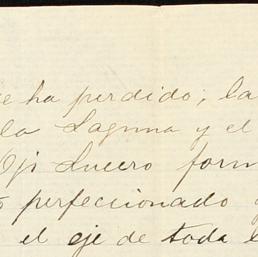 e ha perdido; la
la Laguna y el
Oji Lucero form
perfeccionado
el eje de toda e